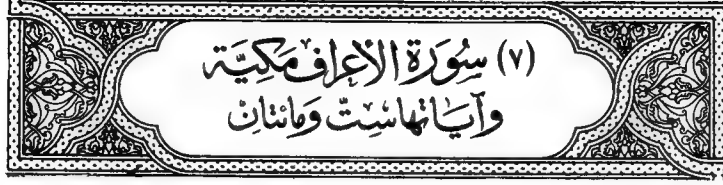 (٧) سُورَة الأعرافِ مَكيَّة
وآيَاتهَا سِتّ وَمائتانْ